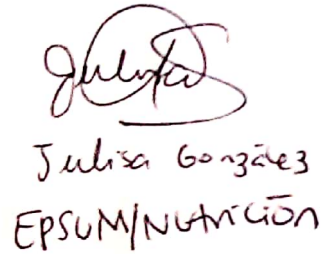 Julisa González
EPSUM/Nutrición